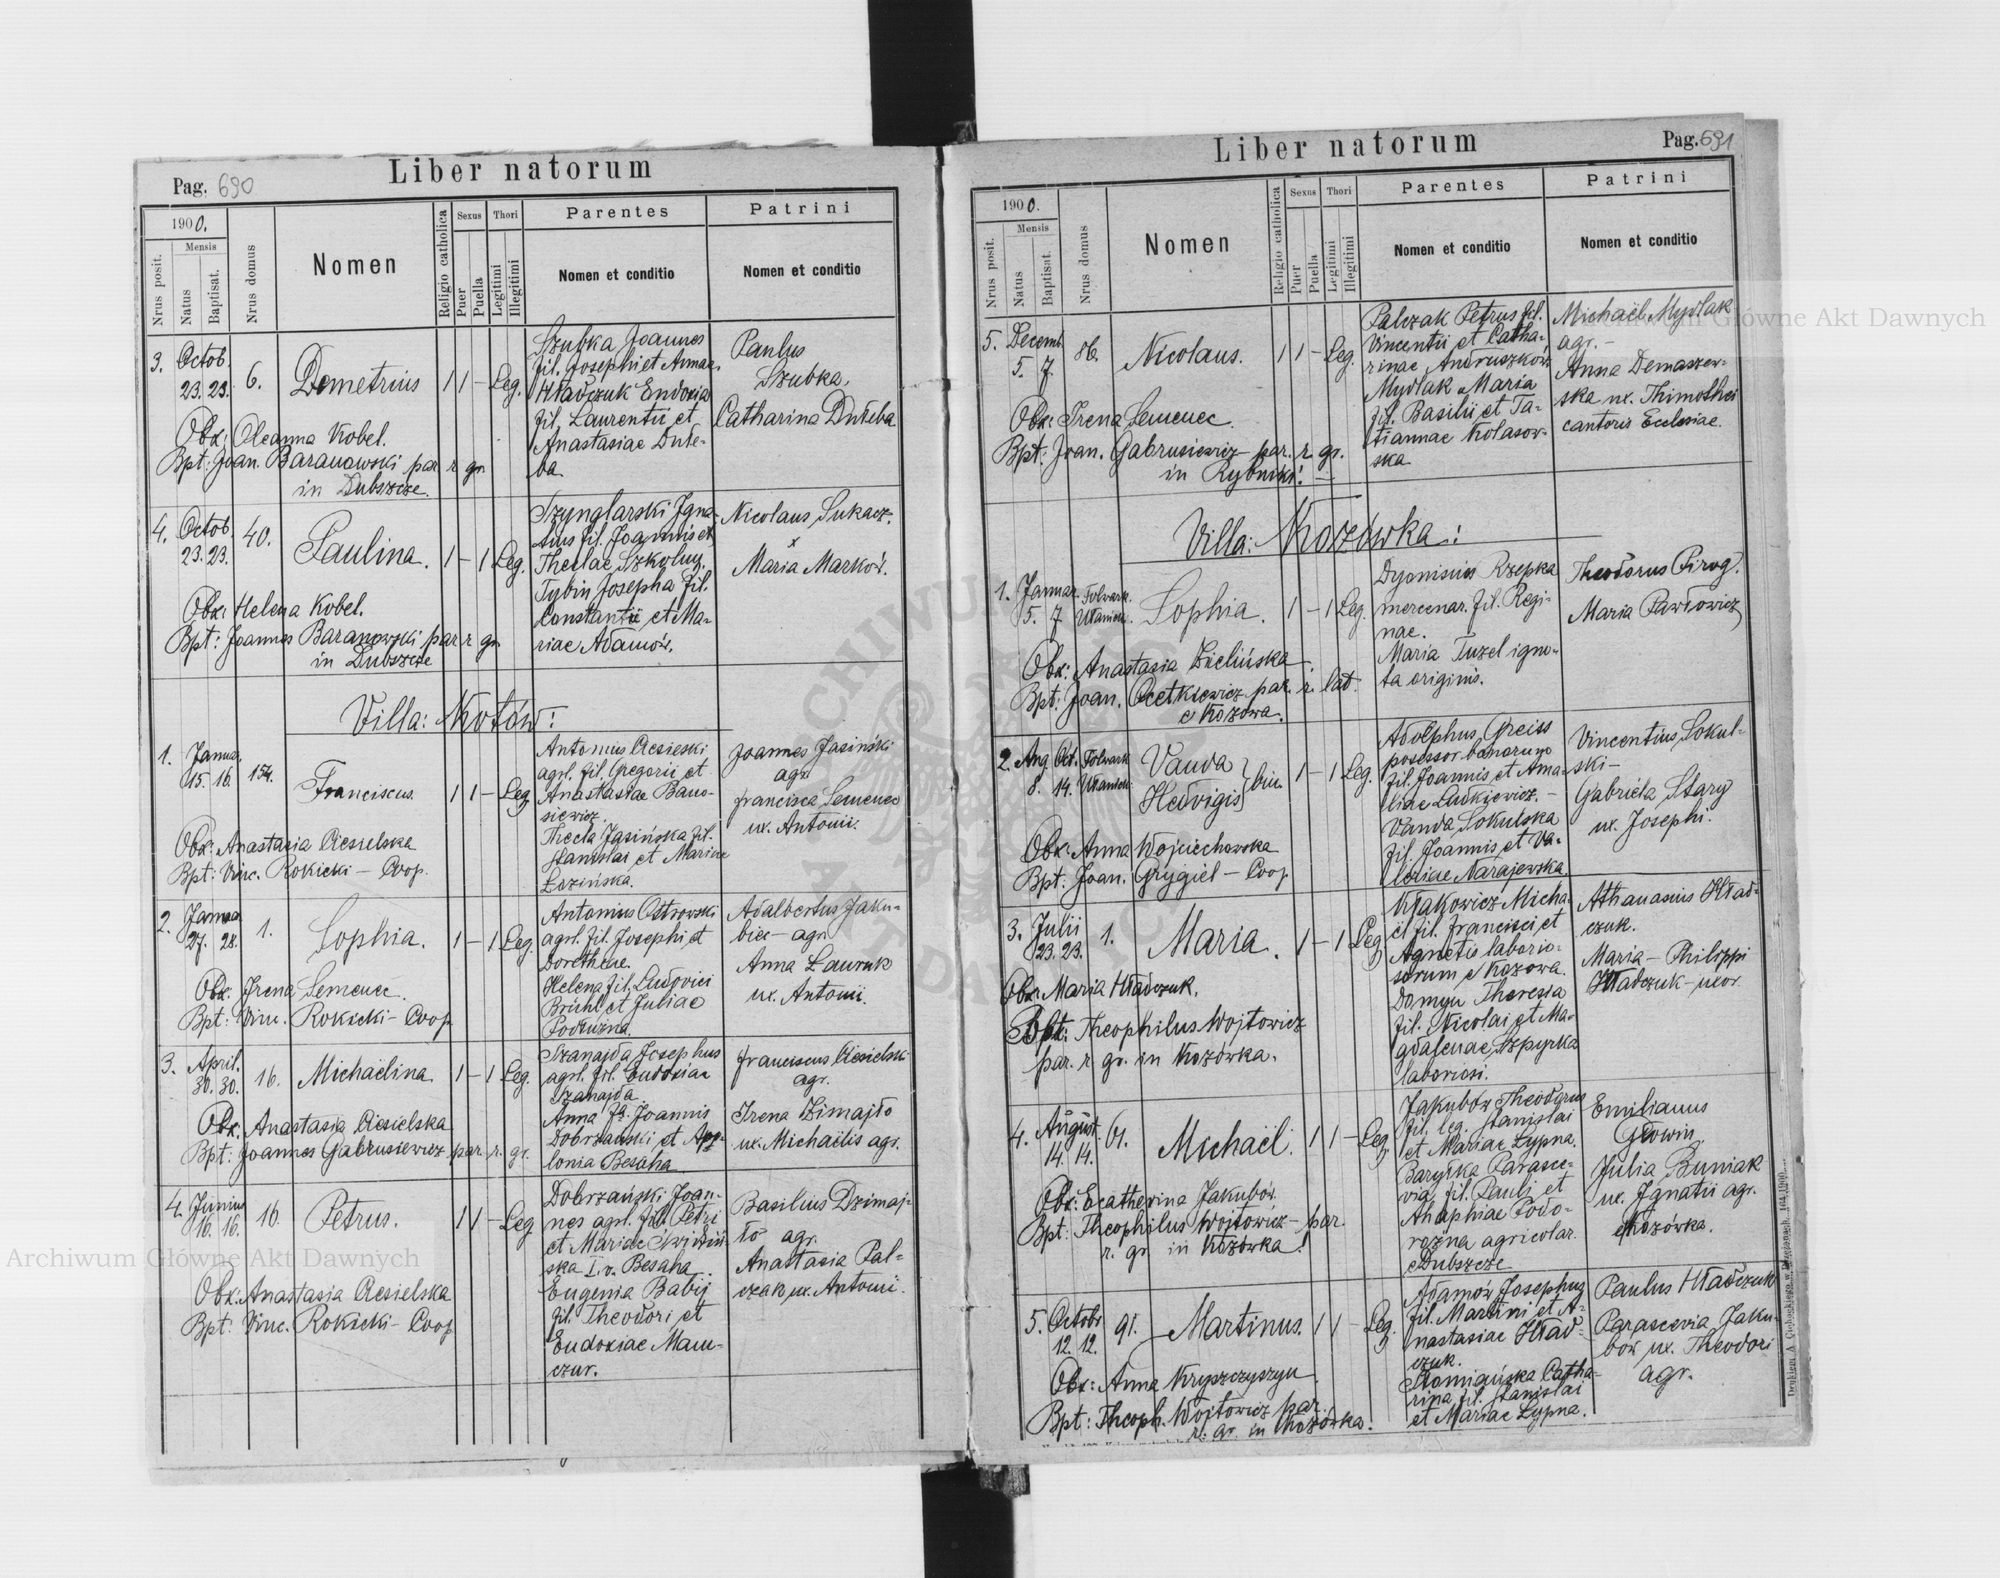 Liber natorum
Pag. 690
1900.
Nrus posit.
Mensis
Natus
Baptisat.
Nrus domus
Nomen
Religio catholica
Sexus
Puer
Puella
Thori
Legitimi
Illegitimi
Parentes
Nomen et conditio
Patrini
Nomen et conditio
3. Octob. 23. 23. 6. Demetrius 1 1 – Leg.
Szubka Joannes
fil. Josephi et Annae.
Hładczuk Eudoxia
fil. Laurentii et
Anastasiae Dułe-
ba
Paulus
Szubka,
Catharina Dułeba
Obx: Oleanna Kobel.
Bpt: Joan. Baranowski par. r. gr.
in Dubszcze.
4. Octob. 23. 23. 40. Paulina. 1 – 1 Leg.
Szynglarski Igna-
tius fil. Joannis et
Theclae Szkolny.
Tybin Josepha fil.
Constantii et Ma-
riae Adamów.
Nicolaus Sukacz.
x
Maria Marków.
Obx: Helena Kobel.
Bpt: Joannes Baranowski par. r. gr.
in Dubszcze
Villa: Kotów:
1. Januar. 15. 16. 154. Franciscus. 1 1 – Leg.
Antonius Ciesielski
agrl. fil. Gregorii et
Anastasiae Bano-
siewicz.
Thecla Jasińska fil.
Stanislai et Mariae
Łozińska.
Joannes Jasiński
agr.
Francisca Semenec
ux. Antonii.
Obx: Anastasia Ciesielska
Bpt: Vinc. Rokicki – Coop.
2. Januar 27. 28. 1. Sophia. 1 – 1 Leg.
Antonius Ostrowski
agrl. fil. Josephi et
Dorotheae.
Helena fil. Ludovici
Brühl et Juliae
Podłużna.
Adalbertus Jaku-
biec – agr.
Anna Lauruk
ux. Antonii.
Obx. Irena Semenec.
Bpt: Vinc. Rokicki – Coop.
3. April. 30. 30. 16. Michaëlina. 1 – 1 Leg.
Szanajda Josephus
agrl. fil. Eudoxiae
Szanajda
Anna fil. Joannis
Dobrzański et Appo-
lonia Besaha
Franciscus Ciesielski
agr.
Irena Dzimajło
ux. Michaëlis agr.
Obx: Anastasia Ciesielska
Bpt: Joannes Gabrusiewicz par. r. gr.
4. Junius 16. 16. 16. Petrus. 1 1 – Leg.
Dobrzański Joan-
nes agrl. fil. Petri
et Mariae
ska I. v. Besaha
Eugenia Babij
fil. Theodori et
Eudoxiae Mam-
czur.
Basilius Dzimaj-
ło agr.
Anastasia Pal-
czak ux. Antonii.
Obx: Anastasia Ciesielska
Bpt: Vinc. Rokicki – Coop.
Liber natorum
Pag. 691
1900.
Nrus posit.
Mensis
Natus
Baptisat.
Nrus domus
Nomen
Religio catholica
Sexus
Puer
Puella
Thori
Legitimi
Illegitimi
Parentes
Nomen et conditio
Patrini
Nomen et conditio
5. Decemb. 5. 7. 86. Nicolaus. 1 1 – Leg.
Palczak Petrus fil.
Vincentii et Catha-
rinae Andruszków
Mydlak Maria
fil. Basilii et Ta-
tiannae Kolasow-
ska
Michaël Mydlak
agr. –
Anna Demaszew-
ska ux. Thimothei
cantoris Ecclesiae.
Obx: Irena Semenec.
Bpt: Joan. Gabrusiewicz – par. r. gr.
in Rybniki! –
Villa: Kozówka:
1. Januar. 5. 7. Folwark Sophia. 1 – 1 Leg.
Dyonisius Rzepka
mercenar. fil. Regi-
nae.
Maria Tuzel igno-
ta originis.
Theodorus Pirog.
Maria Pawłowicz
Obx: Anastasia Zielińska
Bpt: Joan. Ocetkiewicz par. r. lat.
e Kozowa.
2. Aug. 8. Oct. 14. Folwark Vanda Hedvigis } bin. 1 – 1 Leg.
Adolphus Greiss
possessor bonorum
fil. Joannis et Ama-
liae Ludkiewicz. –
Vanda Sokulska
fil. Joannis et Va-
leriae Narajewska
Vincentius Sokul-
ski –
Gabriela Stary
ux. Josephi.
Obx: Anna Wojciechowska
Bpt: Joan. Grygiel – Coop.
3. Julii 23. 23. 1. Maria. 1 – 1 Leg
Kłakowicz Micha-
ël fil. Francisci et
Agnetis laborio-
sorum e Kozowa.
Domyn Theresia
fil. Nicolai et Ma-
gdalenae Szpyrka
laboriosi.
Athanasius Hład-
czuk.
Maria – Philippi
Hładczuk – uxor.
Obx: Maria Hładczuk.
Bpt: Theophilus Wojtowicz
par. r. gr. in Kozówka.
4. August. 14. 14. 61. Michaël. 1 1 – Leg
Jakubów Theodorus
fil. leg. Stanislai
et Mariae Łypna.
Baryłka Parasce-
via fil. Pauli et
Ahaphiae Podo-
rozna agricolar.
Dubszcze
Emilianus
Głowin,
Julia Buniak
ux. Ignatii agr.
Kozówka.
Obx: Ecatherina Jakubów.
Bpt: Theophilus Wojtowicz – par.
r. gr. in Kozówka!
5. Octobr. 12. 12. 91. Martinus. 1 1 – Leg.
Adamów Josephus
fil. Martini et A-
nastasiae Hład-
czuk.
Słomiańska Catha-
rina fil. Stanislai
et Mariae Łypna.
Paulus Hładczuk
Parascevia Jaku-
bów ux. Theodori
agr.
Obx: Anna Kryszczyszyn
Bpt: Theoph. Wojtowicz par.
r. gr. in Kozówka.
Archiwum Główne Akt Dawnych
Archiwum Główne Akt Dawnych